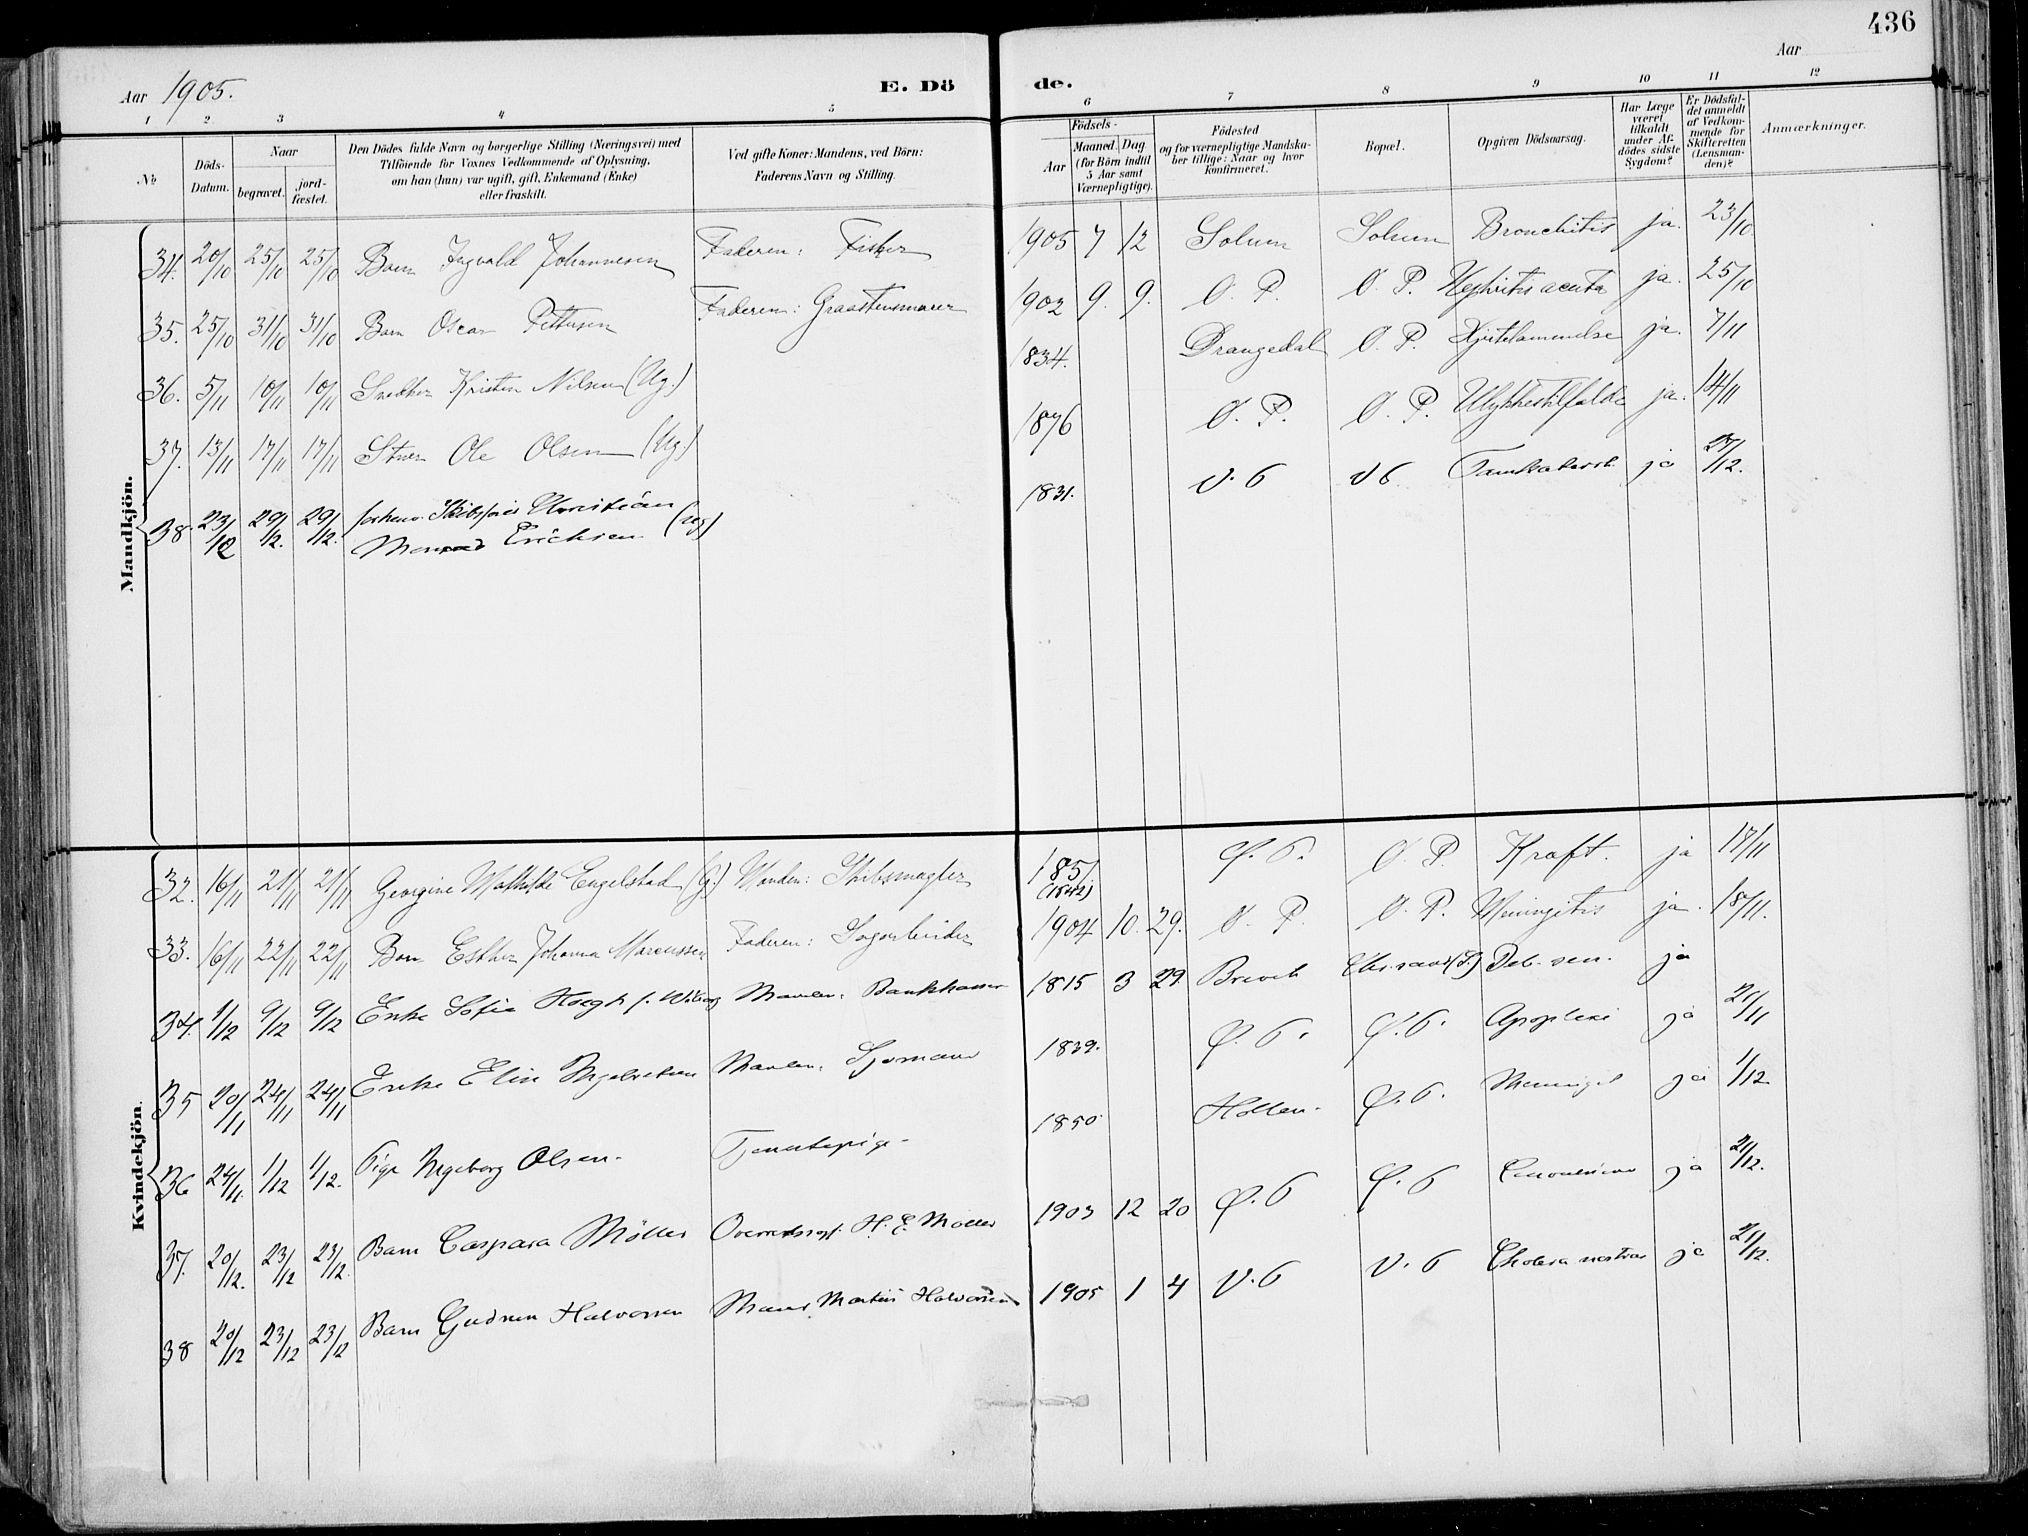 436
Aar 1905.
E. Dö de.
Aar
1 2 3 4 5 6 7 8 9 10 11 12
No
Döds-Datum.
Naar
begravet.
jord-fæstet.
Den Dödes fulde Navn og borgerlige Stilling (Næringsvei) med
Tilföiende for Voxnes Vedkommende af Oplysning,
om han (hun) var ugift, gift, Enkemand (Enke)
eller fraskilt.
Ved gifte Koner: Mandens, ved Börn:
Faderens Navn og Stilling.
Födsels-
Aar
Maaned. Dag
(for Börn indtil
5 Aar samt
Værnepligtige).
Födested
og for værnepligtige Mandska-
ber tillige: Naar og hvor
konfirmeret.
Bopæl.
Opgiven Dödsaarsag.
Har Læge
været
tilkaldt
under Af-
dödes sidste
Sygdom?
Er Dödsfal-
det anmeldt
af Vedkom-
mende for
Skifteretten
(Lensman-
den)?
Anmærkninger.
Mandkjön.
34. 20/10 25/10 25/10 Barn Ingvald Johannesen Faderen: Fisker 1905 7 12 Solum Solum Bronchitis ja. 23/10
35. 25/10 31/10 31/10 Barn Oscar Pettersen Faderen: Graastensmurer 1902 9. 9. Ø. P. Ø. P. Nephritis acuta ja. 25/10
36. 5/11 10/11 10/11 Snedker Kristen Nilsen (Ug.) 1834. Drangedal Ø. P. Hjertelammelse ja. 7/11
37. 13/11 17/11 17/11 Stuer Ole Olsen (Ug.) 1876 Ø. P. Ø. P. Ulykkestilfælde ja. 14/11
38 23/12 29/12. 29/12. forhenv. Skibsfører Christian
Erichsen (ug) 1831. V. P V P ja 27/12.
Kvindekjön.
32. 16/11 21/11 21/11 Georgine Mathilde Engelstad (G.) Manden: Skibsmægler 1851. (1842) Ø. P. Ø. P. Kræft. ja 17/11
33. 16/11 22/11 22/11 Barn Esther Johanna Marcussen Faderen: 1904 10. 29. Ø. P. Ø. P. Meningitis ja. 18/11.
34. 1/12 9/12 9/12 Enke Sofie Høegh f. Wiborg Manden: 1815 3 29 Brevik Chr.sand (S.) Deb. sen. ja
35 20/11 24/11 24/11 Enke Elin Ingebretsen Manden: Sjømand 1839. Ø. P. Ø. P. Apoplexi ja 21/11
36 24/11 1/12 1/12. Pige Ingeborg Olsen. Tjenestepige 1850 Holden. Ø. P. Meningit ja 1/12
37. 20/12. 23/12 23/12. Barn Caspara Möller H. E. Møller 1903 12 20 Ø. P Ø. P ja 21/12.
38 20/12 23/12 23/12 Barn Gudrun Halvorsen Martin Halvorsen 1905 1 4 V. P V. P Cholera nostras ja 21/12.